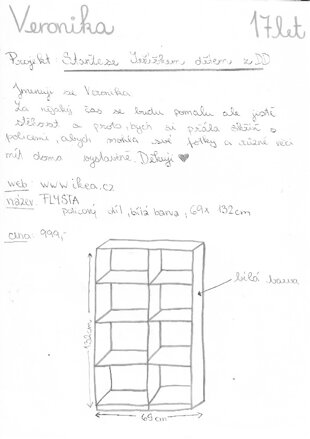 Veronika 17 let
Projekt Staňte se Ježíškem dětem z DD
Jmenuji se Veronika
Za nějaký čas se budu pomalu ale jistě
stěhovat a proto bych si přála skříň s
policemi, abych mohla své fotky a různé věci
mít doma vystavené. Děkuji ♥
web: www.ikea.cz
název: FLYSTA
policový díl, bílá barva, 69x 132cm
cena: 999,-
bílá barva
132cm
69cm